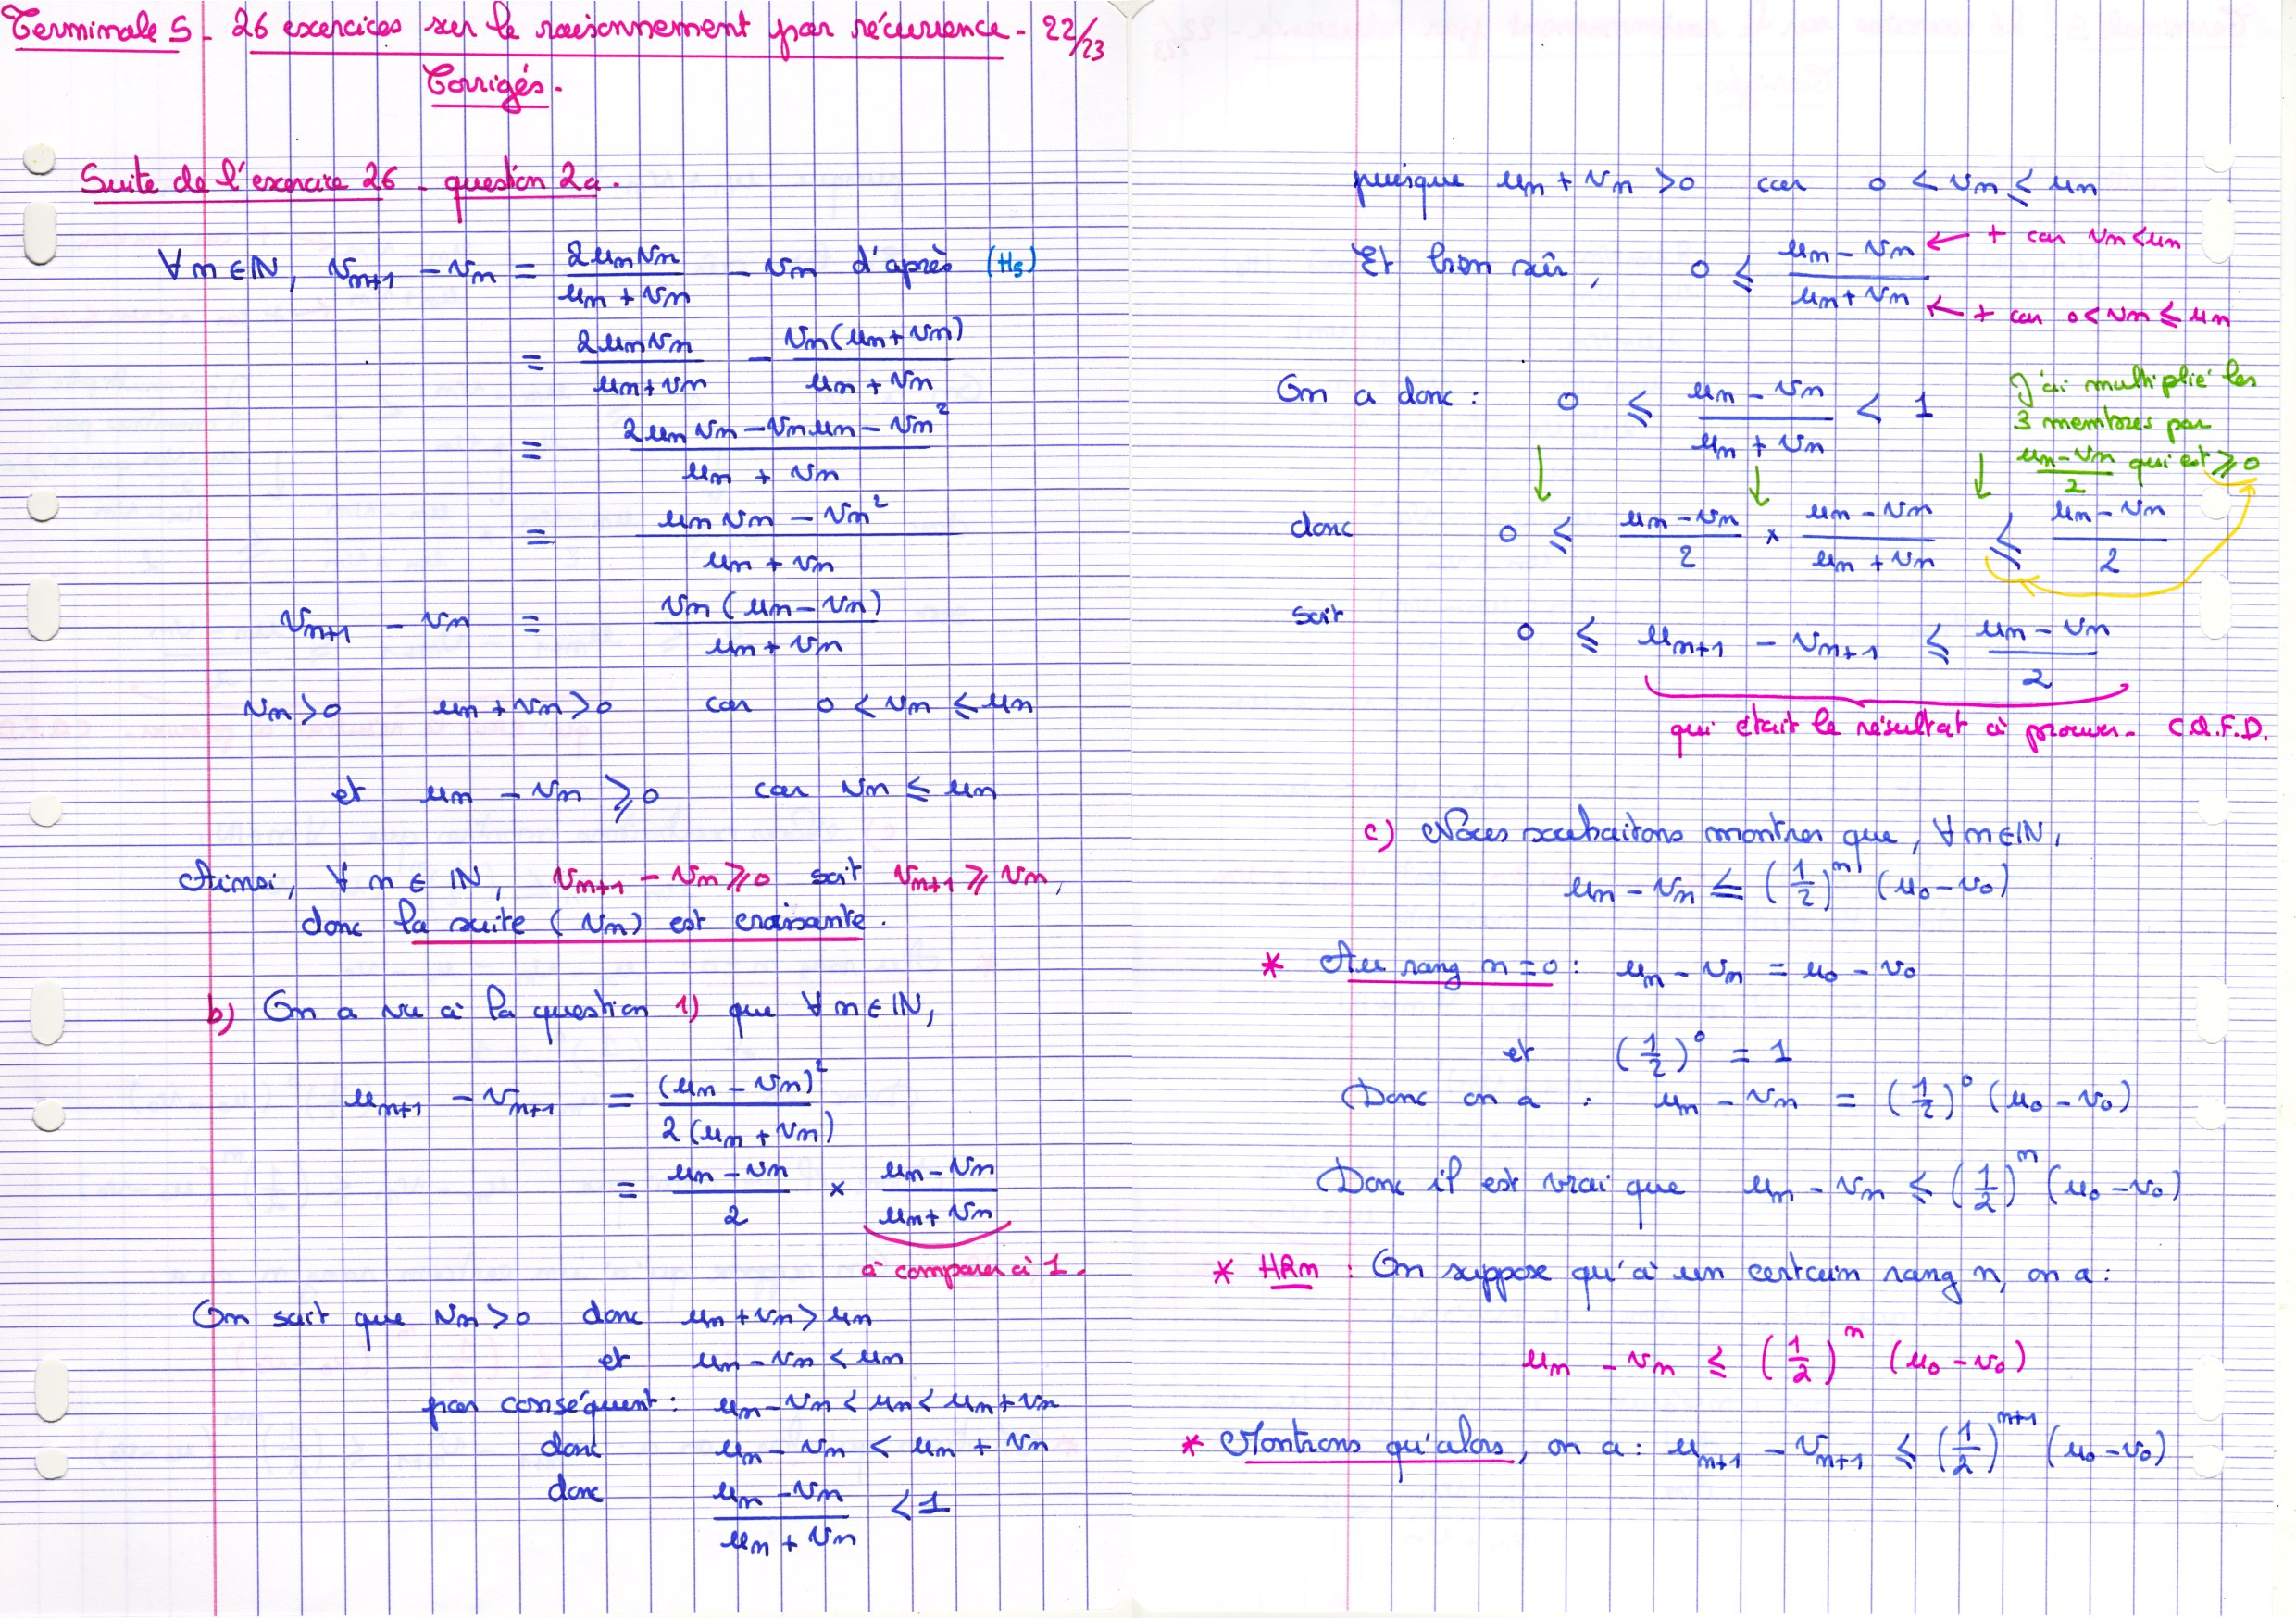 Terminale S - 26 exercices sur le raisonnement par récurrence - 22/23
Corrigés.
Suite de l'exercice 26 - question 2a.
∀n∈ℕ, v_{n+1} - v_n = 2u_n v_n / (u_n + v_n) - v_n d'après (H5)
= 2u_n v_n / (u_n + v_n) - v_n(u_n + v_n) / (u_n + v_n)
= (2u_n v_n - v_n u_n - v_n²) / (u_n + v_n)
= (u_n v_n - v_n²) / (u_n + v_n)
v_{n+1} - v_n = v_n(u_n - v_n) / (u_n + v_n)
v_n > 0 u_n + v_n > 0 car 0 < v_n ≤ u_n
et u_n - v_n ≥ 0 car v_n ≤ u_n
Ainsi, ∀n∈ℕ, v_{n+1} - v_n ≥ 0 soit v_{n+1} ≥ v_n,
donc la suite (v_n) est croissante.
b) On a vu à la question 1) que ∀n∈ℕ,
u_{n+1} - v_{n+1} = (u_n - v_n)² / 2(u_n + v_n)
= (u_n - v_n) / 2 × (u_n - v_n) / (u_n + v_n)
à comparer à 1.
On sait que v_n > 0 donc u_n + v_n > u_n
et u_n - v_n < u_n
par conséquent : u_n - v_n < u_n < u_n + v_n
donc u_n - v_n < u_n + v_n
donc (u_n - v_n) / (u_n + v_n) < 1
puisque u_n + v_n > 0 car 0 < v_n ≤ u_n
Et bien sûr, 0 ≤ (u_n - v_n) / (u_n + v_n) ← + car v_n < u_n
← + car 0 < v_n ≤ u_n
On a donc : 0 ≤ (u_n - v_n) / (u_n + v_n) < 1
J'ai multiplié les
3 membres par
(u_n - v_n) / 2 qui est ≥ 0
donc 0 ≤ (u_n - v_n) / 2 × (u_n - v_n) / (u_n + v_n) ≤ (u_n - v_n) / 2
soit 0 ≤ u_{n+1} - v_{n+1} ≤ (u_n - v_n) / 2
qui était le résultat à prouver. C.Q.F.D.
c) Nous souhaitons montrer que, ∀n∈ℕ,
u_n - v_n ≤ (1/2)^n (u_0 - v_0)
* Au rang n = 0 : u_n - v_n = u_0 - v_0
et (1/2)^0 = 1
Donc on a : u_n - v_n = (1/2)^0 (u_0 - v_0)
Donc il est vrai que u_n - v_n ≤ (1/2)^n (u_0 - v_0)
* HRn : On suppose qu'à un certain rang n, on a :
u_n - v_n ≤ (1/2)^n (u_0 - v_0)
* Montrons qu'alors, on a : u_{n+1} - v_{n+1} ≤ (1/2)^{n+1} (u_0 - v_0)